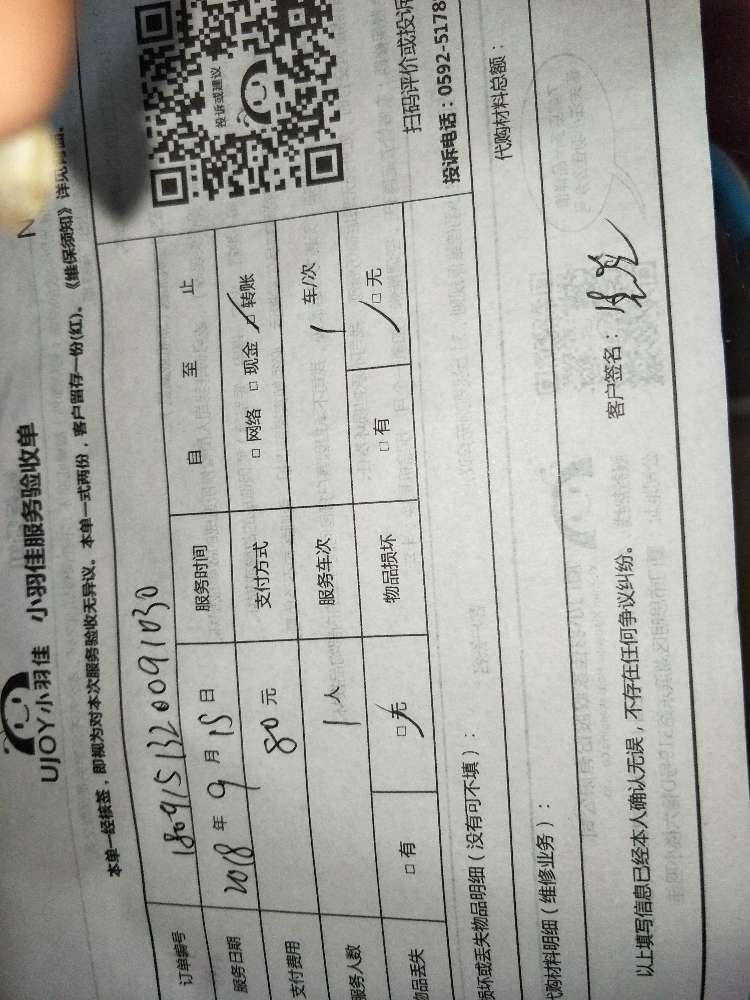 UJOY小羽佳 小羽佳服务验收单
本单一经核签，即视为对本次服务验收无异议。本单一式两份，客户留存一份(红)。《维保须知》详见背面。
订单编号 180915132009 1030
服务日期 2018年9月15日 服务时间 自 至 止
支付费用 80元 支付方式 □网络 □现金 □转账
服务人数 1人 服务车次 1车/次
物品丢失 □有 □无 物品损坏 □有 □无
投诉或建议
扫码评价或投诉
投诉电话：0592-5178
损坏或丢失物品明细（没有可不填）：
代购材料明细（维修业务）： 代购材料总额：
以上填写信息已经本人确认无误，不存在任何争议纠纷。 客户签名：